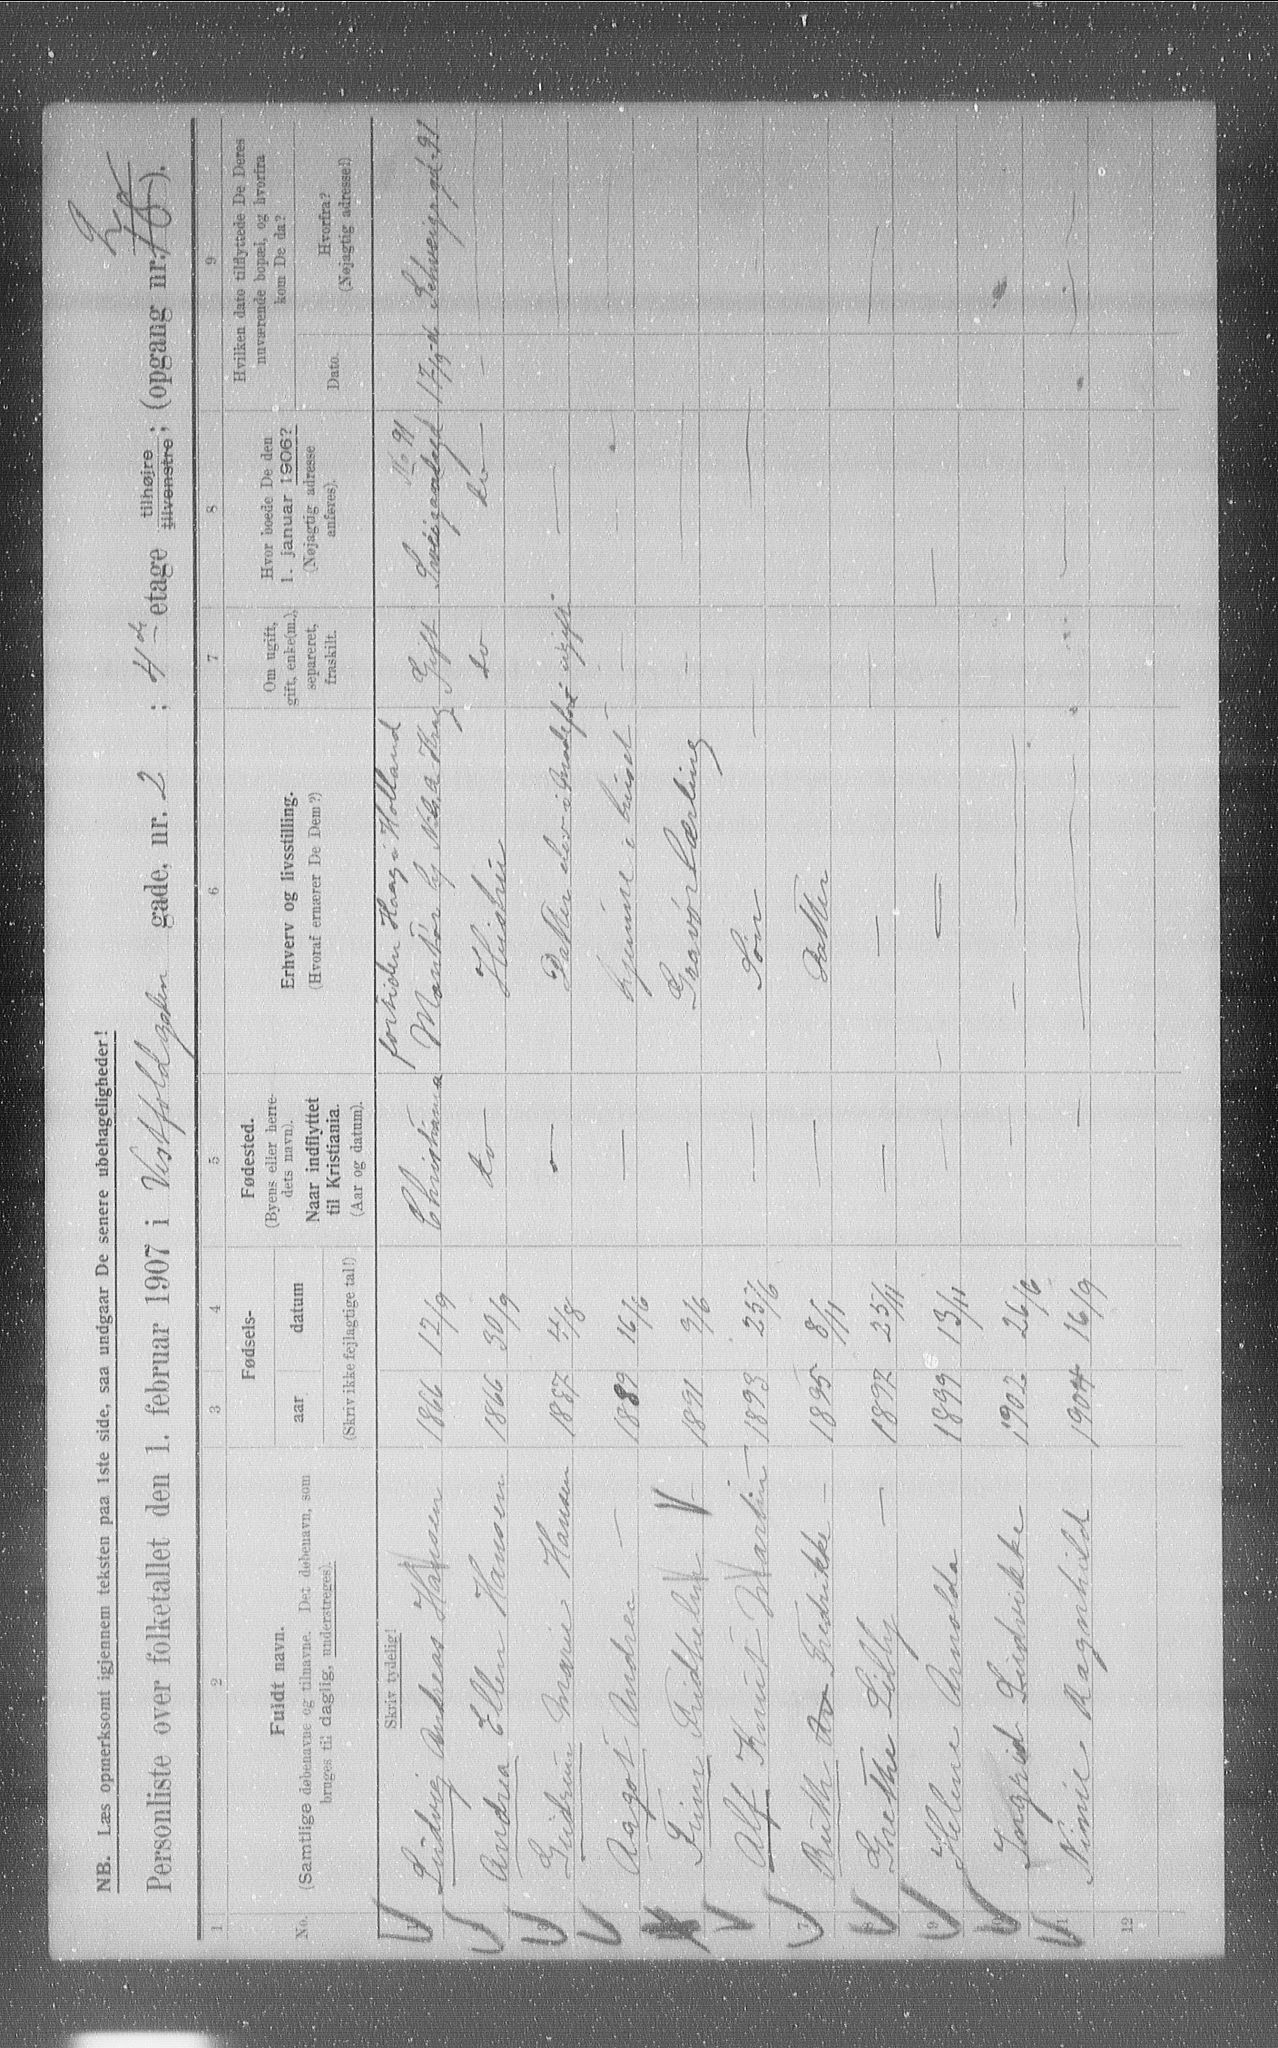 NB. Læs opmerksomt igjennem teksten paa 1ste side, saa undgaar De senere ubehageligheder!
Personliste over folketallet den 1. februar 1907 i Vestfoldgaden gade, nr. 2 ; 4de etage tilhøjre tilvenstre ; (opgang nr. 2).
1 2 3 4 5 6 7 8 9
No.
Fuldt navn.
(Samtlige døbenavne og tilnavne. Det døbenavn, som
bruges til daglig, understreges).
Fødsels-
aar datum
(Skriv ikke fejlagtige tal!)
Fødested.
(Byens eller herre-
dets navn).
Naar indflyttet
til Kristiania.
(Aar og datum).
Erhverv og livsstilling.
(Hvoraf ernærer De Dem?)
Om ugift,
gift, enke(m.),
separeret,
fraskilt.
Hvor boede De den
1. januar 1906?
(Nøjagtig adresse
anføres).
Hvilken dato tilflyttede De Deres
nuværende bopæl, og hvorfra
kom De da?
Dato.
Hvorfra?
(Nøjagtig adresse!)
Skriv tydelig!
fortiden Haag i Holland No 91
1 Ludvig Andreas Hansen 1866 12/9 Christiania Montør Gift 17/9 Schweigrgd. 91
2 Andrea Ellen Hansen 1866 30/9 do — Hustru do do —
3 Gudrun Marie Hansen 1887 4/8 — Datter ugift —
4 Aagot Andrea — 1889 16/6 — hjemme i huset —
Finn Fridhelm — 1891 9/6 — Gravør Lærling —
Alf Knut Martin — 1893 25/6 — Søn —
7 Ruth Fredrikke — 1895 8/11 — Datter
8 Grethe Lilly — 1897 25/11 — —
9 Helene Arnolda 1899 13/11 — —
10 Ingrid Ludvikke 1902 26/6 — —
11 Nimie Ragnhild 1904 16/9 — —
12